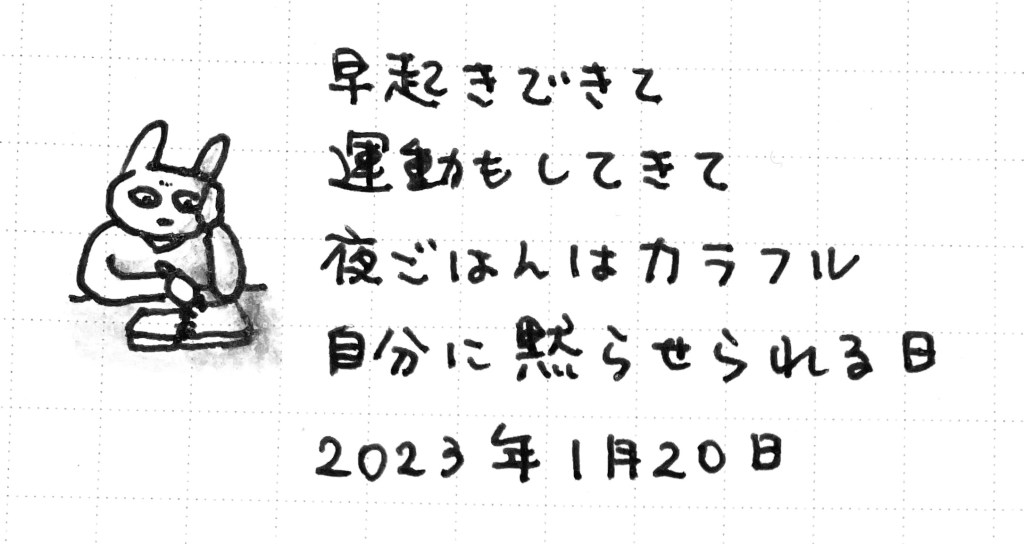 早起きできて
運動もしてきて
夜ごはんはカラフル
自分に黙らせられる日
2023年1月20日